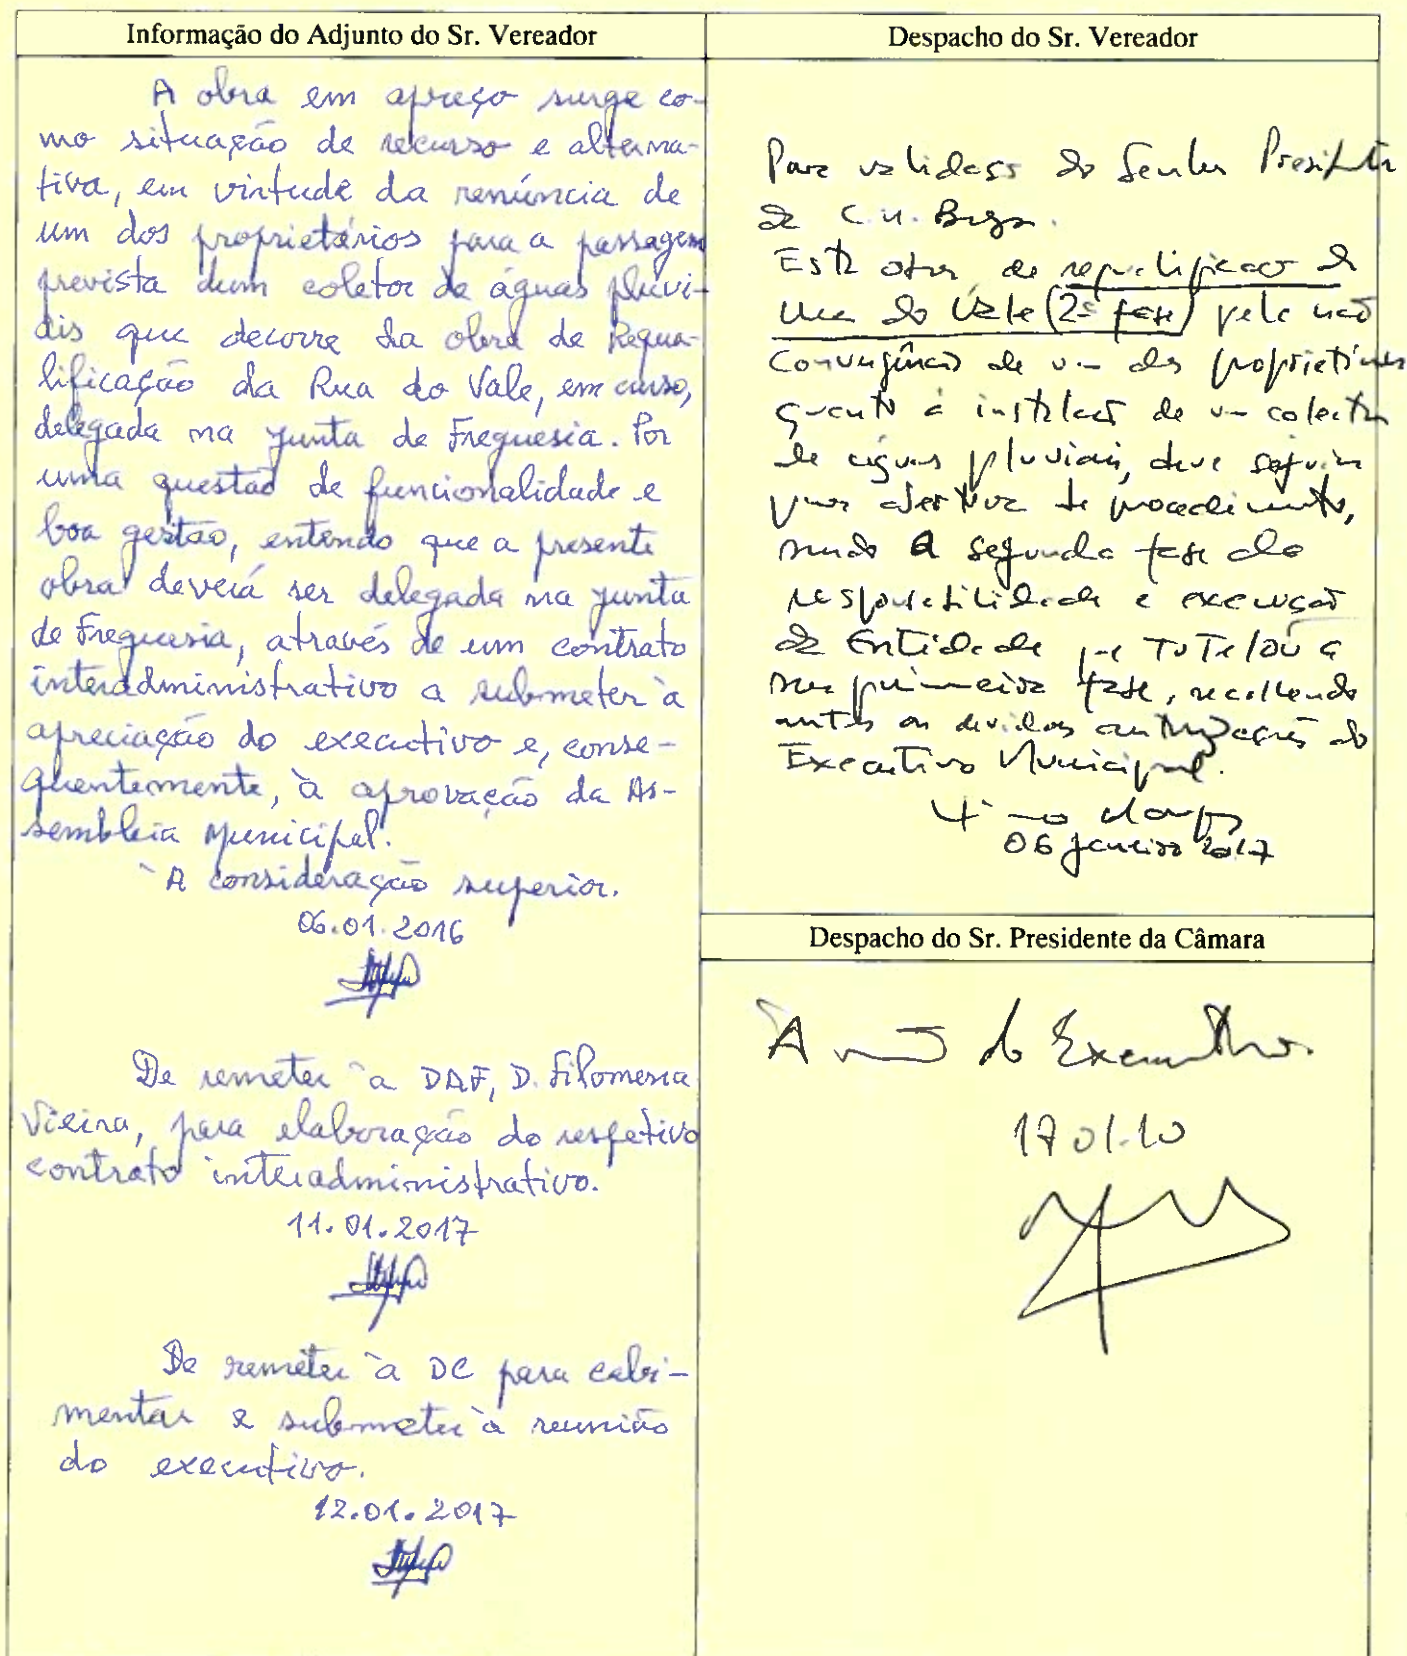 Informação do Adjunto do Sr. Vereador
A obra em apreço surge co-
mo situação de recurso e alterna-
tiva, em virtude da renúncia de
um dos proprietários para a passagem
prevista dum coletor de águas pluvi-
ais que decorre da obra de Requa-
lificação da Rua do Vale, em curso,
delegada na Junta de Freguesia. Por
uma questão de funcionalidade e
boa gestão, entendo que a presente
obra deverá ser delegada na Junta
de Freguesia, através de um contrato
interadministrativo a submeter à
apreciação do executivo e, conse-
quentemente, à aprovação da As-
sembleia Municipal.
À consideração superior.
06.01.2016
De remeter à DAF, D. Filomena
Vieira, para elaboração do respetivo
contrato interadministrativo.
11.01.2017
De remeter à DC para cabi-
mentar e submeter à reunião
do executivo.
12.01.2017
Despacho do Sr. Vereador
Para validação do Senhor Presidente
da C.M. Braga.
Esta obra, de requalificação da
Rua do Vale (2ª fase) pela não
convergência de um dos proprietários
quanto à instalação de um colector
de águas pluviais, deve seguir
para abertura de procedimento,
sendo a segunda fase da
responsabilidade e execução
da Entidade que tutelou a
sua primeira fase, recolhendo
antes as devidas autorizações do
Executivo Municipal.
06 janeiro 2017
Despacho do Sr. Presidente da Câmara
À do Executivo.
17.01.10